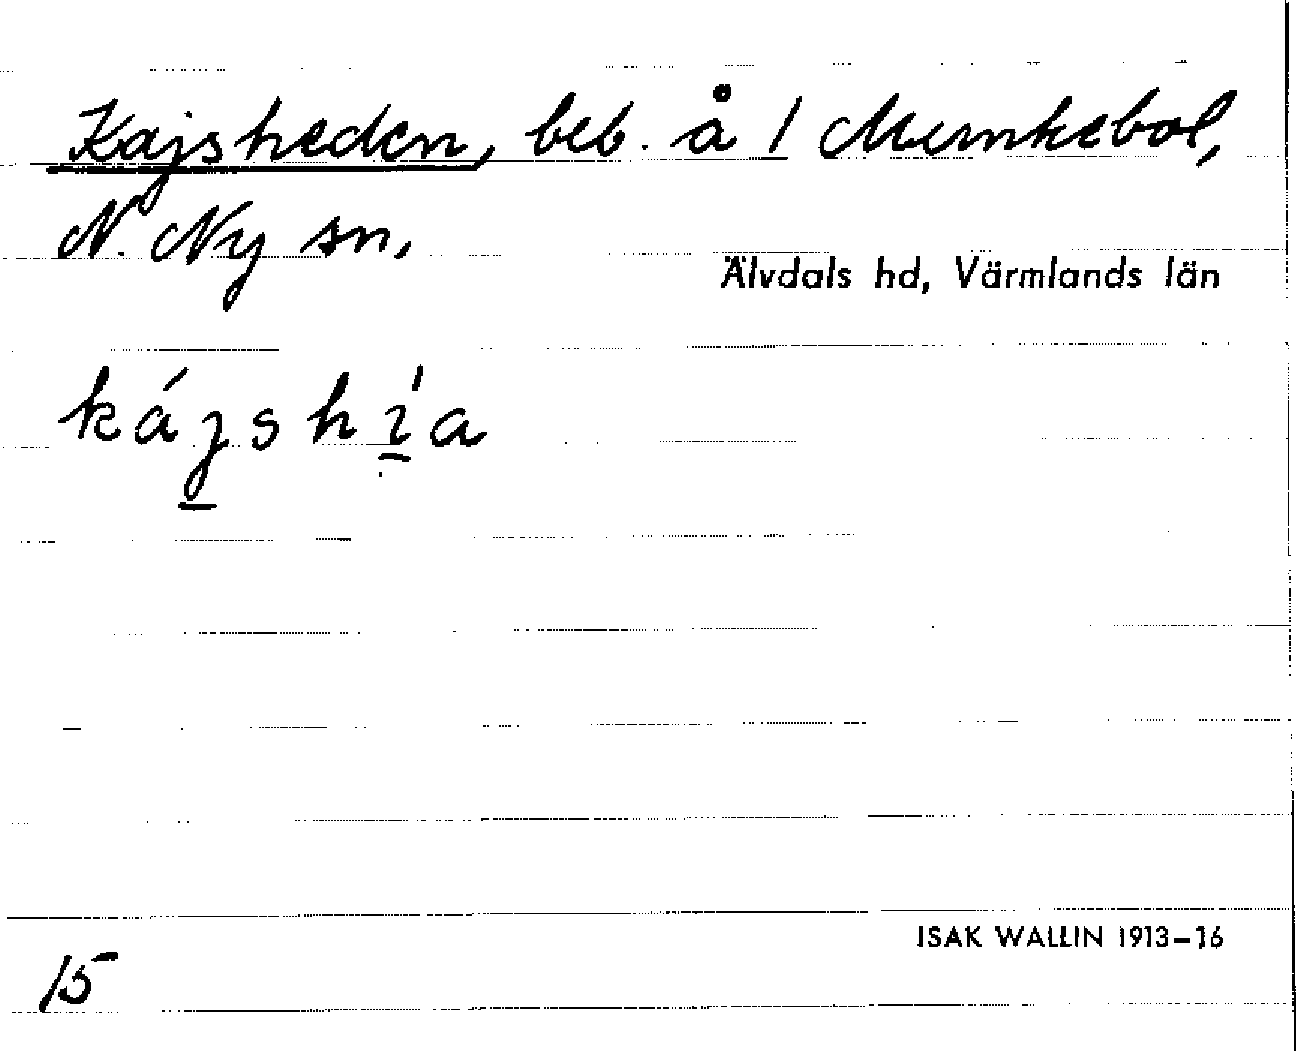 Kajsheden, beb. å 1 Munkebol,
N. Ny sn,
Älvdals hd, Värmlands län
kájshí̱a
ISAK WALLIN 1913–16
15